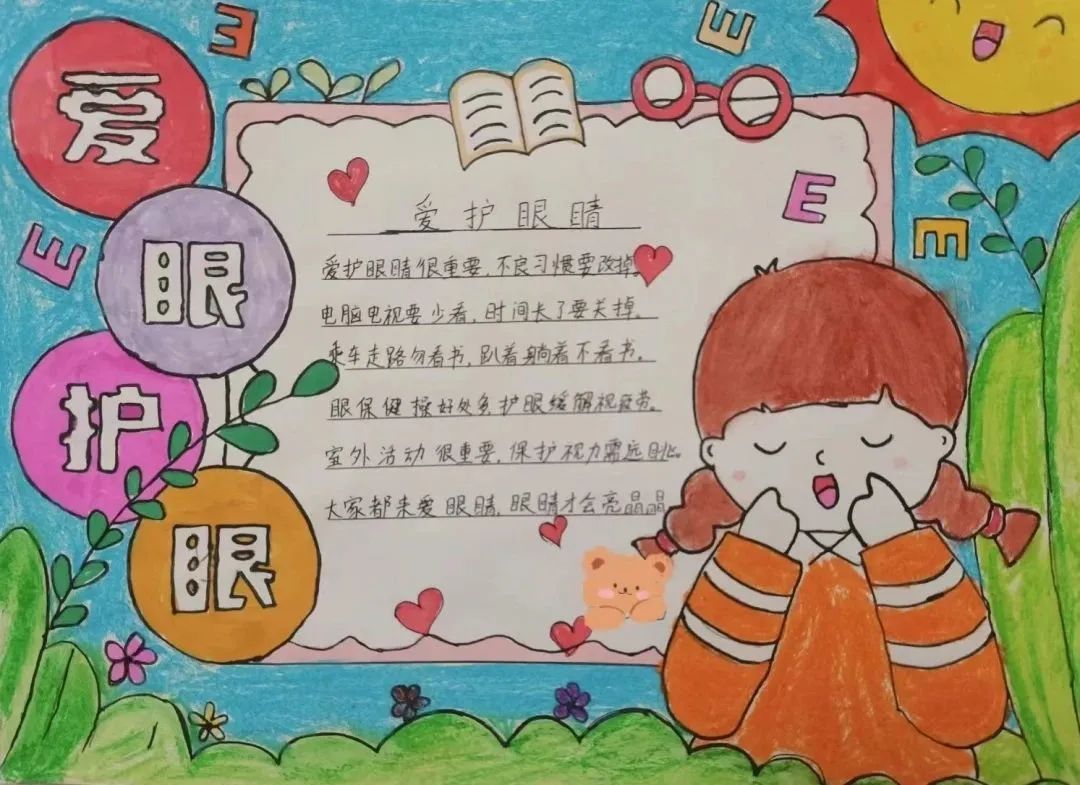 爱眼护眼
E
E
E
E
E
爱护眼睛
爱护眼睛很重要,不良习惯要改掉。
电脑电视要少看,时间长了要关掉。
乘车走路勿看书,趴着躺着不看书。
眼保健操好处多,护眼缓解视疲劳。
室外活动很重要,保护视力需远眺。
大家都来爱眼睛,眼睛才会亮晶晶